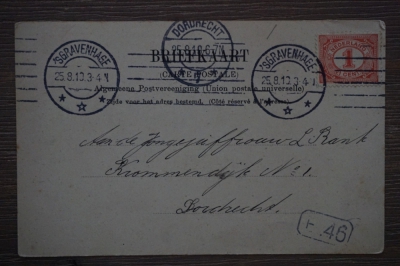 DORDRECHT
25.8.10.6-7N
'SGRAVENHAGE
25.8.10.3-4N
'SGRAVENHAGE
25.8.10.3-4N
NEDERLAND
1
CENT
BRIEFKAART
(CARTE POSTALE)
Algemeene Postvereeniging (Union postale universelle)
Zijde voor het adres bestemd. (Côté réservé à l'adresse)
Aan de Jongejuffrouw L Rank
Krommendijk No 1.
Dordrecht.
46